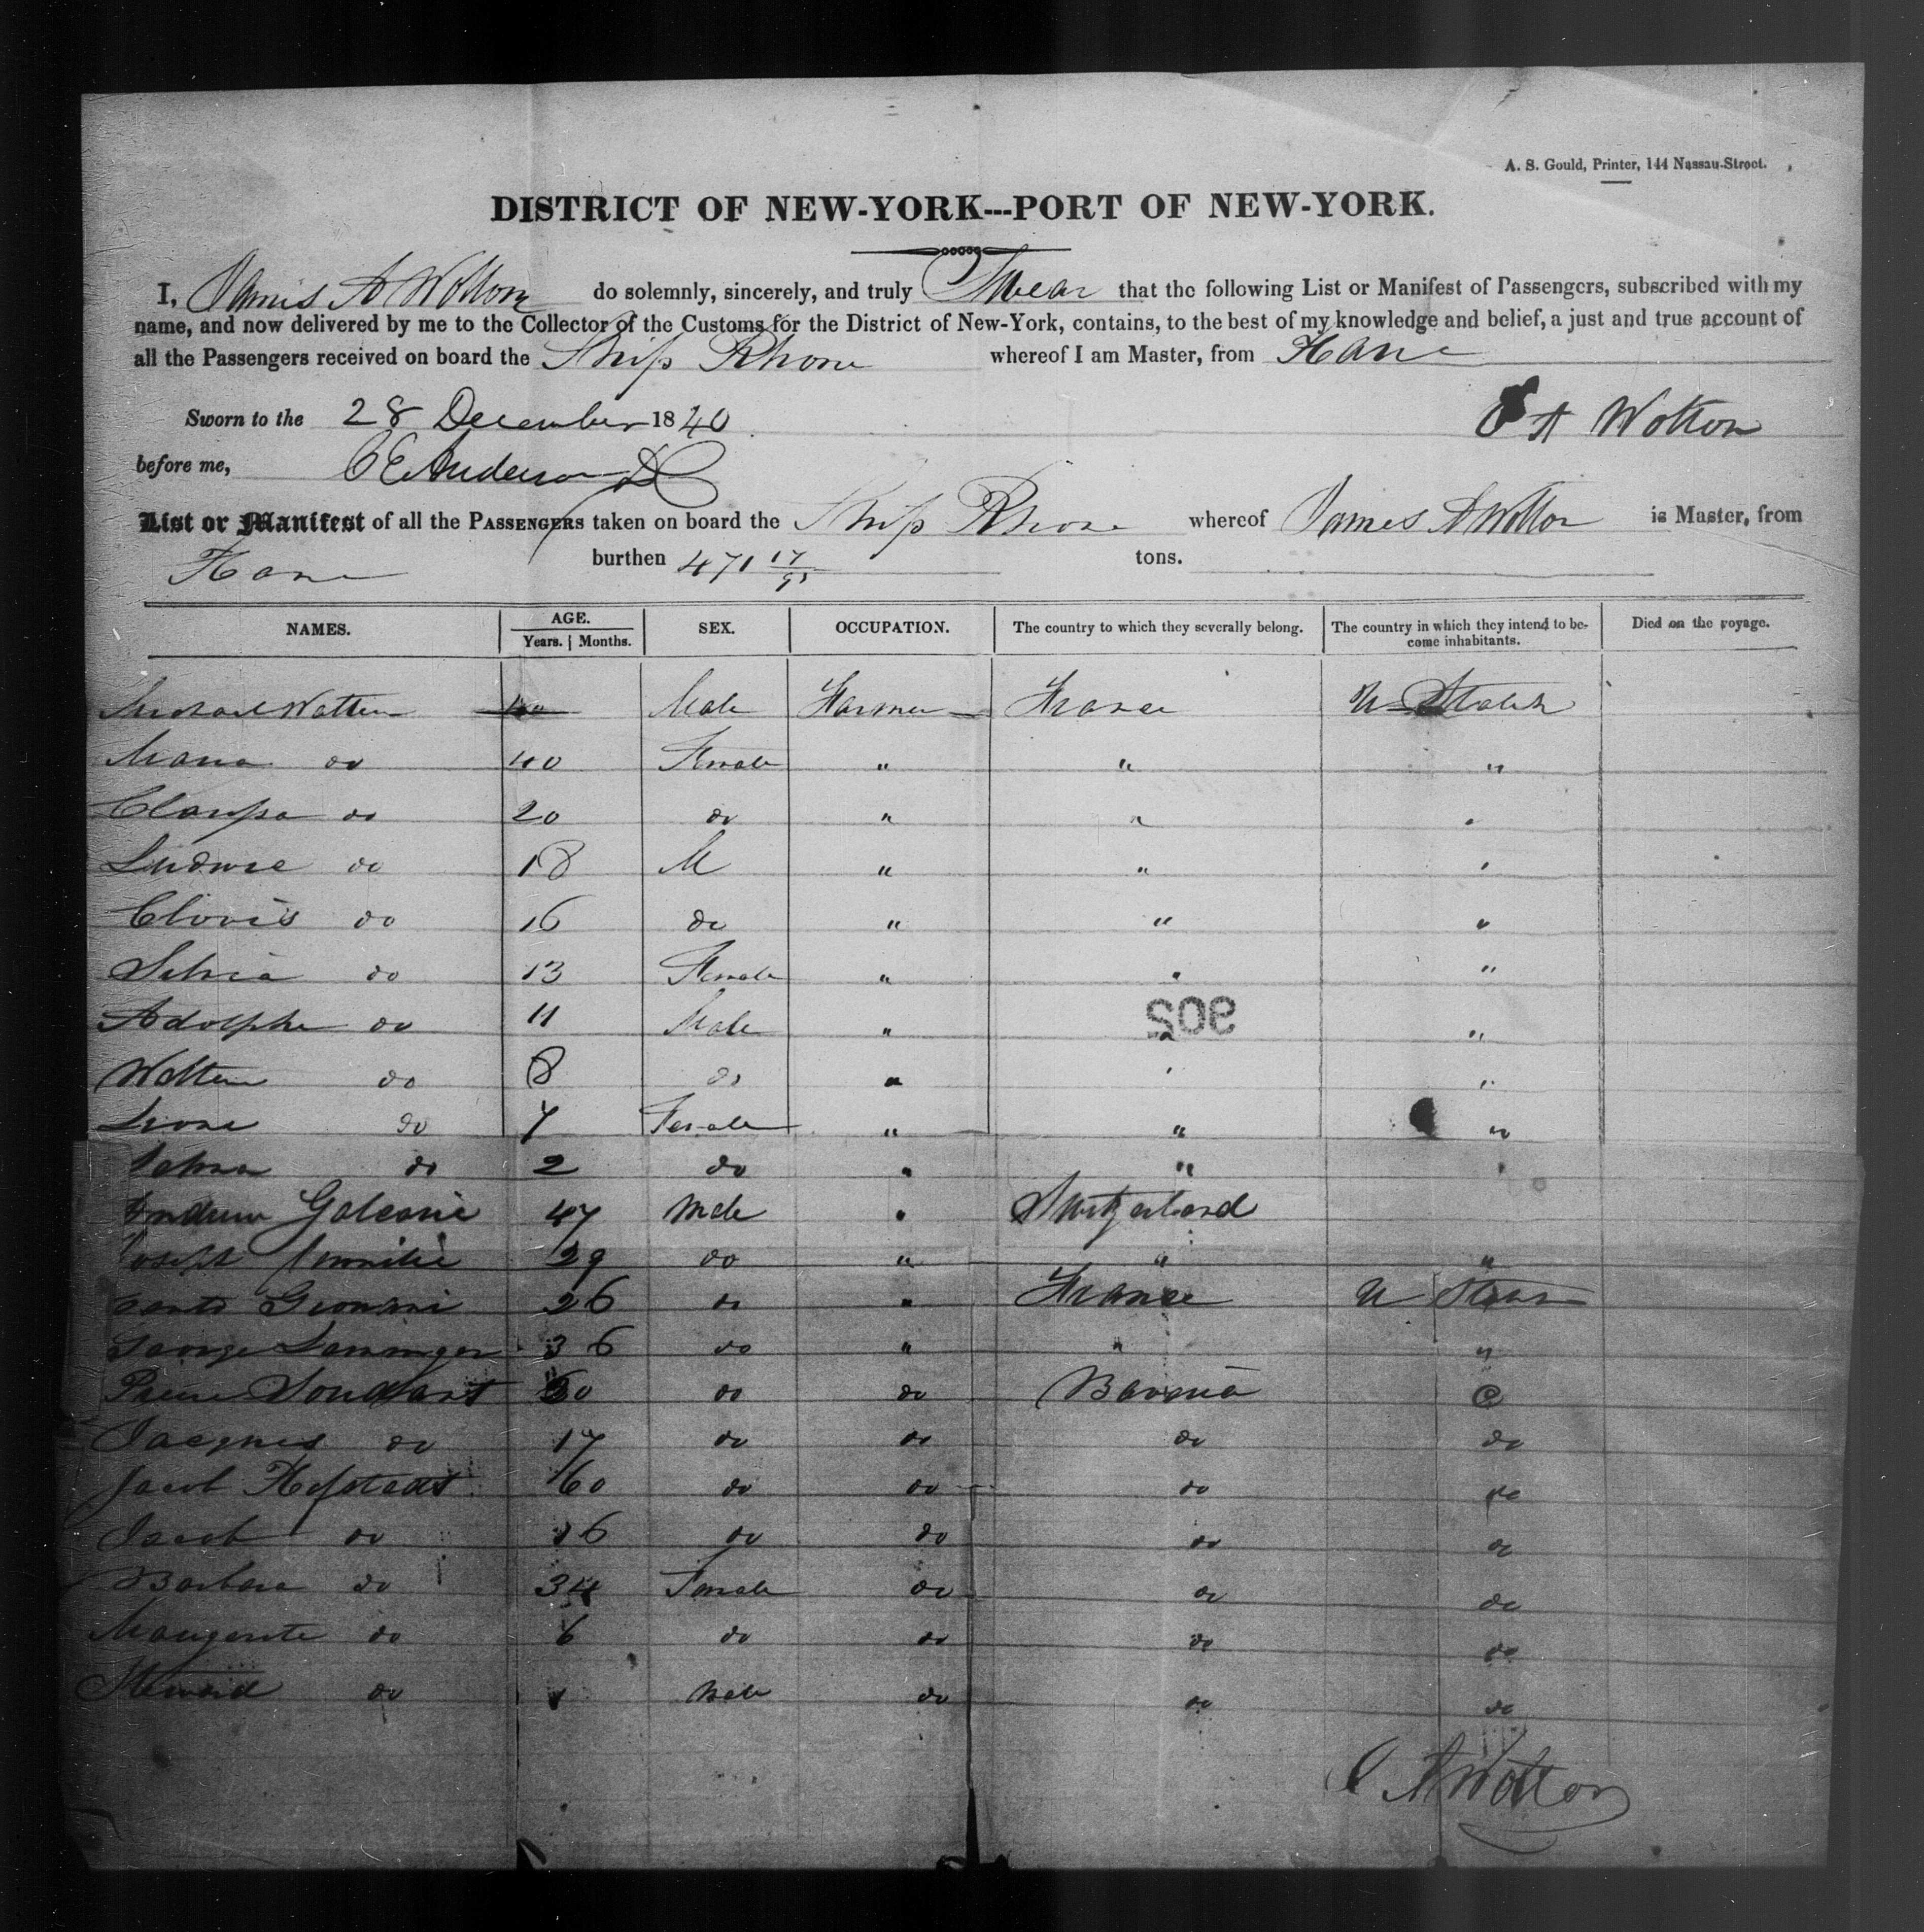 A. S. Gould, Printer, 144 Nassau-Street.
DISTRICT OF NEW-YORK---PORT OF NEW-YORK.
I, James A Wotton do solemnly, sincerely, and truly Swear that the following List or Manifest of Passengers, subscribed with my
name, and now delivered by me to the Collector of the Customs for the District of New-York, contains, to the best of my knowledge and belief, a just and true account of
all the Passengers received on board the Ship Rhone whereof I am Master, from Havre
Sworn to the 28 December 1840 J A Wotton
before me, C E Anderson DC
List or Manifest of all the PASSENGERS taken on board the Ship Rhone whereof James A Wotton is Master, from
Havre burthen 471 17/95 tons.
NAMES. AGE. SEX. OCCUPATION. The country to which they severally belong. The country in which they intend to be- Died on the voyage.
Years. Months. come inhabitants.
Michael 40 Male Farmer France U States
Maria do 40 Female " " "
do 20 do " " "
do 18 M " " "
Clovis do 16 do " " "
do 13 Female " " "
Adolphe do 11 Male " " "
906
do 8 do " " "
do 7 Female " " "
do 2 do " " "
47 Male " Switzerland
Joseph 29 do " " "
26 do " France U States
George 36 do " " "
do do Bavaria
Jacques do 17 do do do do
Jacob 60 do do do do
Jacob do 16 do do do do
Barbara do 34 Female do do do
do 6 do do do do
do Male do do do
J A Wotton